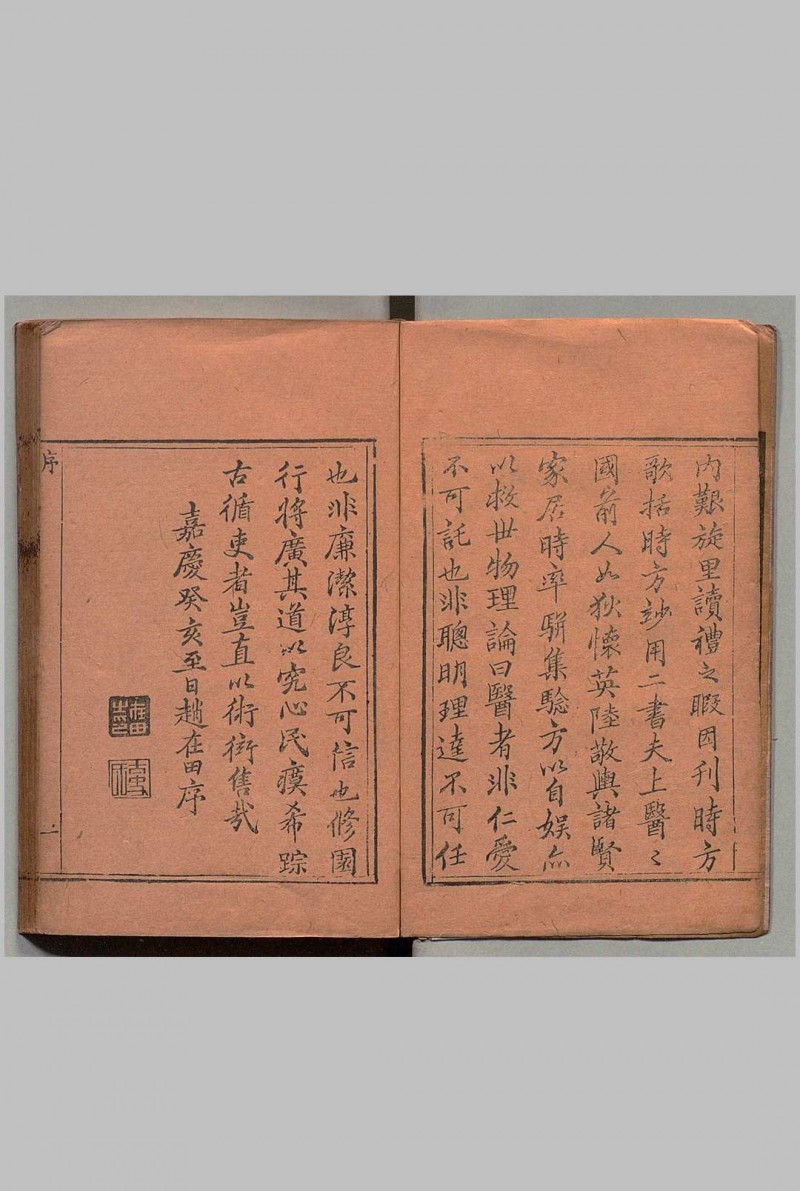 內艱旋里讀禮之暇因刊時方
歌括時方玅用二書夫上醫〻
國前人如狄懷英陸敬輿諸賢
家居時率騈集驗方以自娯亦
以救世物理論曰醫者非仁愛
不可託也非聰明理達不可任
也非廉潔淳良不可信也修園
行將廣其道以究心民瘼希踪
古循吏者豈直以術衒售㢤
嘉慶癸亥至日趙在田序
序
二